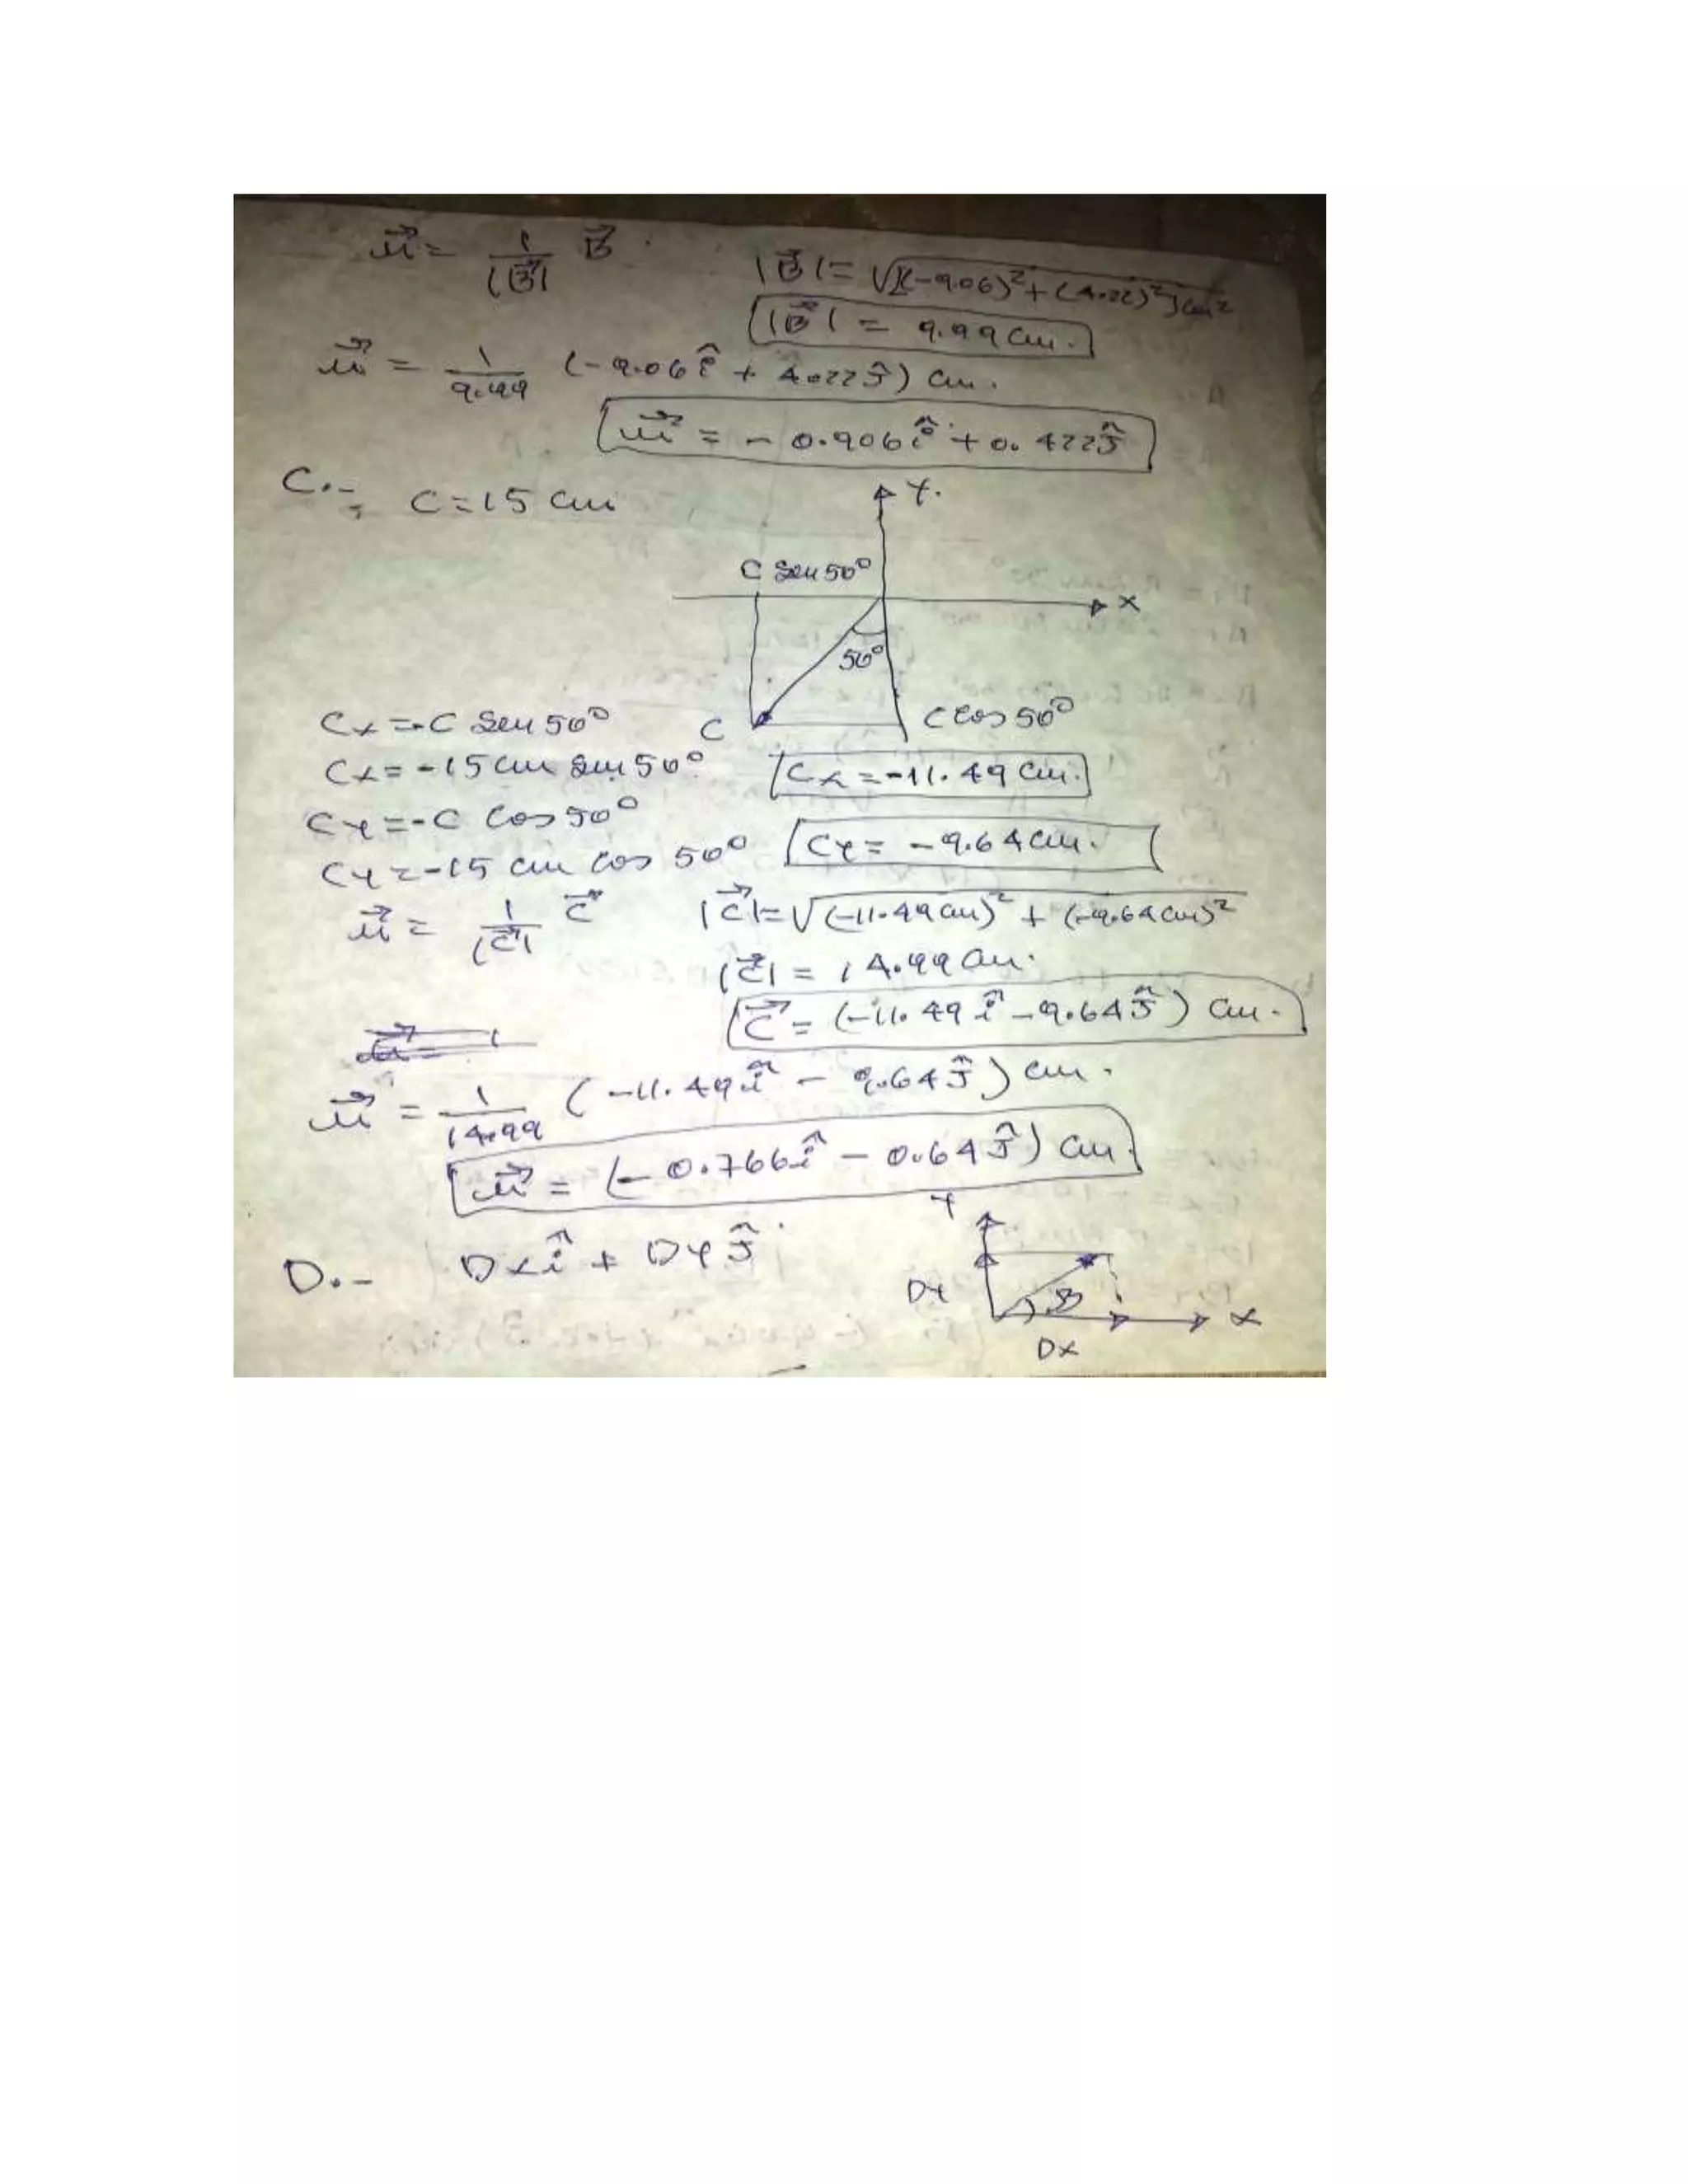 u⃗ = 1/|B⃗| B⃗.
|B⃗| = √[(-9.06)² + (4.22)²] cm²
|B⃗| = 9.99 cm.
u⃗ = 1/9.99 (-9.06 î + 4.22 ĵ) cm.
u⃗ = - 0.906 î + 0.422 ĵ
C.- C = 15 cm
Y.
C sen 50°
X
50°
C cos 50°
C
Cx = -C sen 50°
Cx = -15 cm sen 50°
Cx = -11.49 cm.
Cy = -C cos 50°
Cy = -15 cm cos 50°
Cy = -9.64 cm.
u⃗ = 1/|C⃗| C⃗
|C⃗| = √(-11.49 cm)² + (-9.64 cm)²
|C⃗| = 14.99 cm.
C⃗ = (-11.49 î - 9.64 ĵ) cm.
u⃗ = 1/14.99 (-11.49 î - 9.64 ĵ) cm.
u⃗ = (-0.766 î - 0.64 ĵ) cm.
D.- Dx î + Dy ĵ
Y
Dy
X
Dx